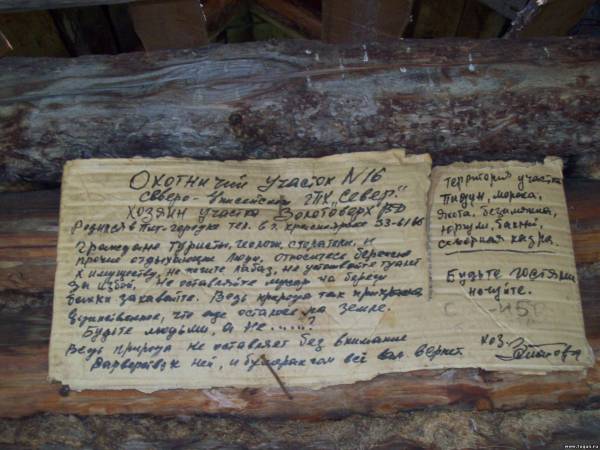 Охотничий участок N16
Северо-Енисейский ГПХ „Север"
Хозяин участка Золотоварх ВД
Родился в Пит-городке тел. в г. Красноярске 53-61-86
Граждане туристы, геологи, старатели, и
прочие отдыхающие люди, относитесь бережно
к имуществу, не жгите лабаз, не устраивайте туалет
за избой, не оставляйте мусор на берегу
банки закапывайте. Ведь природа так прекрасна
единственное, что еще осталось на земле.
Будьте людьми, а не......?
Ведь природа не оставляет без внимания
варварство к ней, и бумерангом всё вам вернет.
Территория участка
Пидун, морока,
безымянка,
северная кадра.
Будьте гостями
ночуйте.
Хоз.
www.tugun.ru